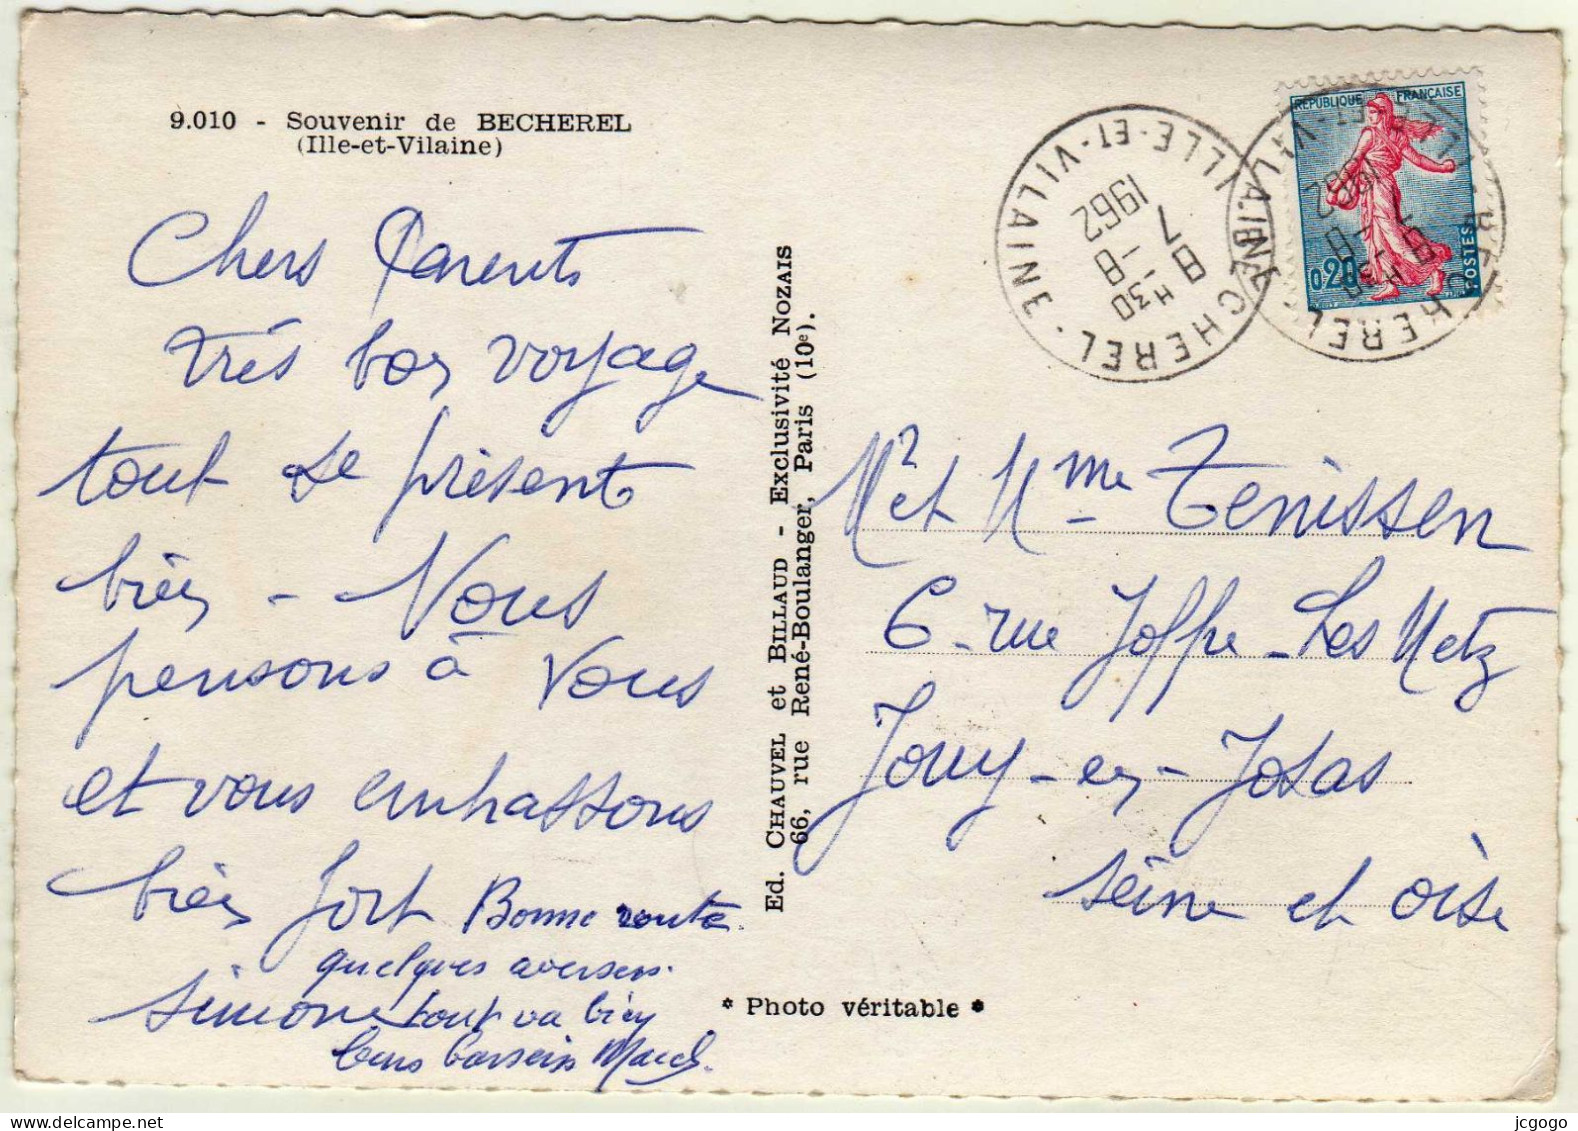 9.010 - Souvenir de BECHEREL
(Ille-et-Vilaine)
Chers Parents
très bon voyage
tout se présente
bien - Nous
pensons à Vous
et vous embrassons
bien fort
Simone
Bonne route
quelques averses.
tout va bien
bons baisers
Ed. CHAUVEL et BILLAUD - Exclusivité NOZAIS
66, rue René-Boulanger, Paris (10e).
* Photo véritable *
BECHEREL · ILLE-ET-VILAINE
8 H 30
8 - 7
1962
REPUBLIQUE FRANÇAISE
0,20
POSTES
Mr et Mme Tenissen
6 - rue Joffre - Les Metz
Jouy - en - Josas
Seine et Oise
jcgogo